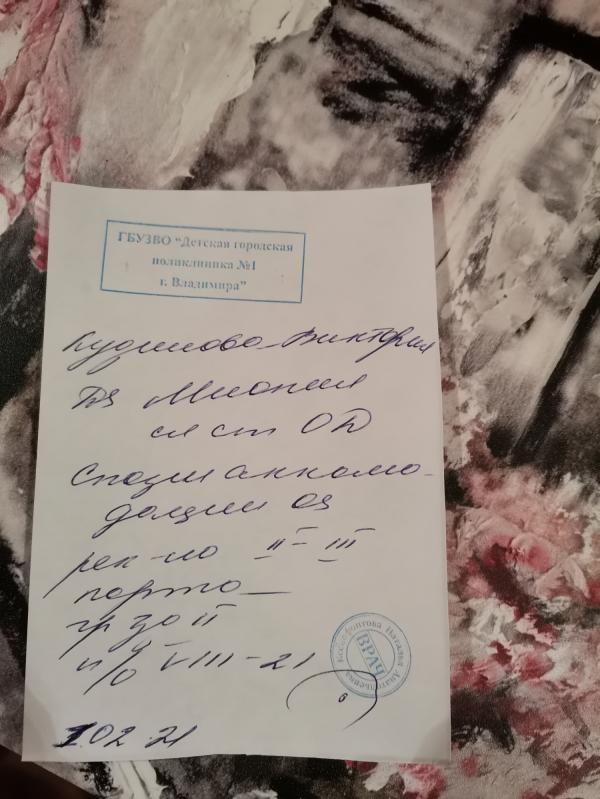 ГБУЗВО "Детская городская
поликлиника №1
г. Владимира"
Виктория
Ds Миопия
сл ст OD
Спазм аккомо-
дации OS
рек-но II-III
парта
гр зо II
VIII-21
ВРАЧ
Наталья
02 21